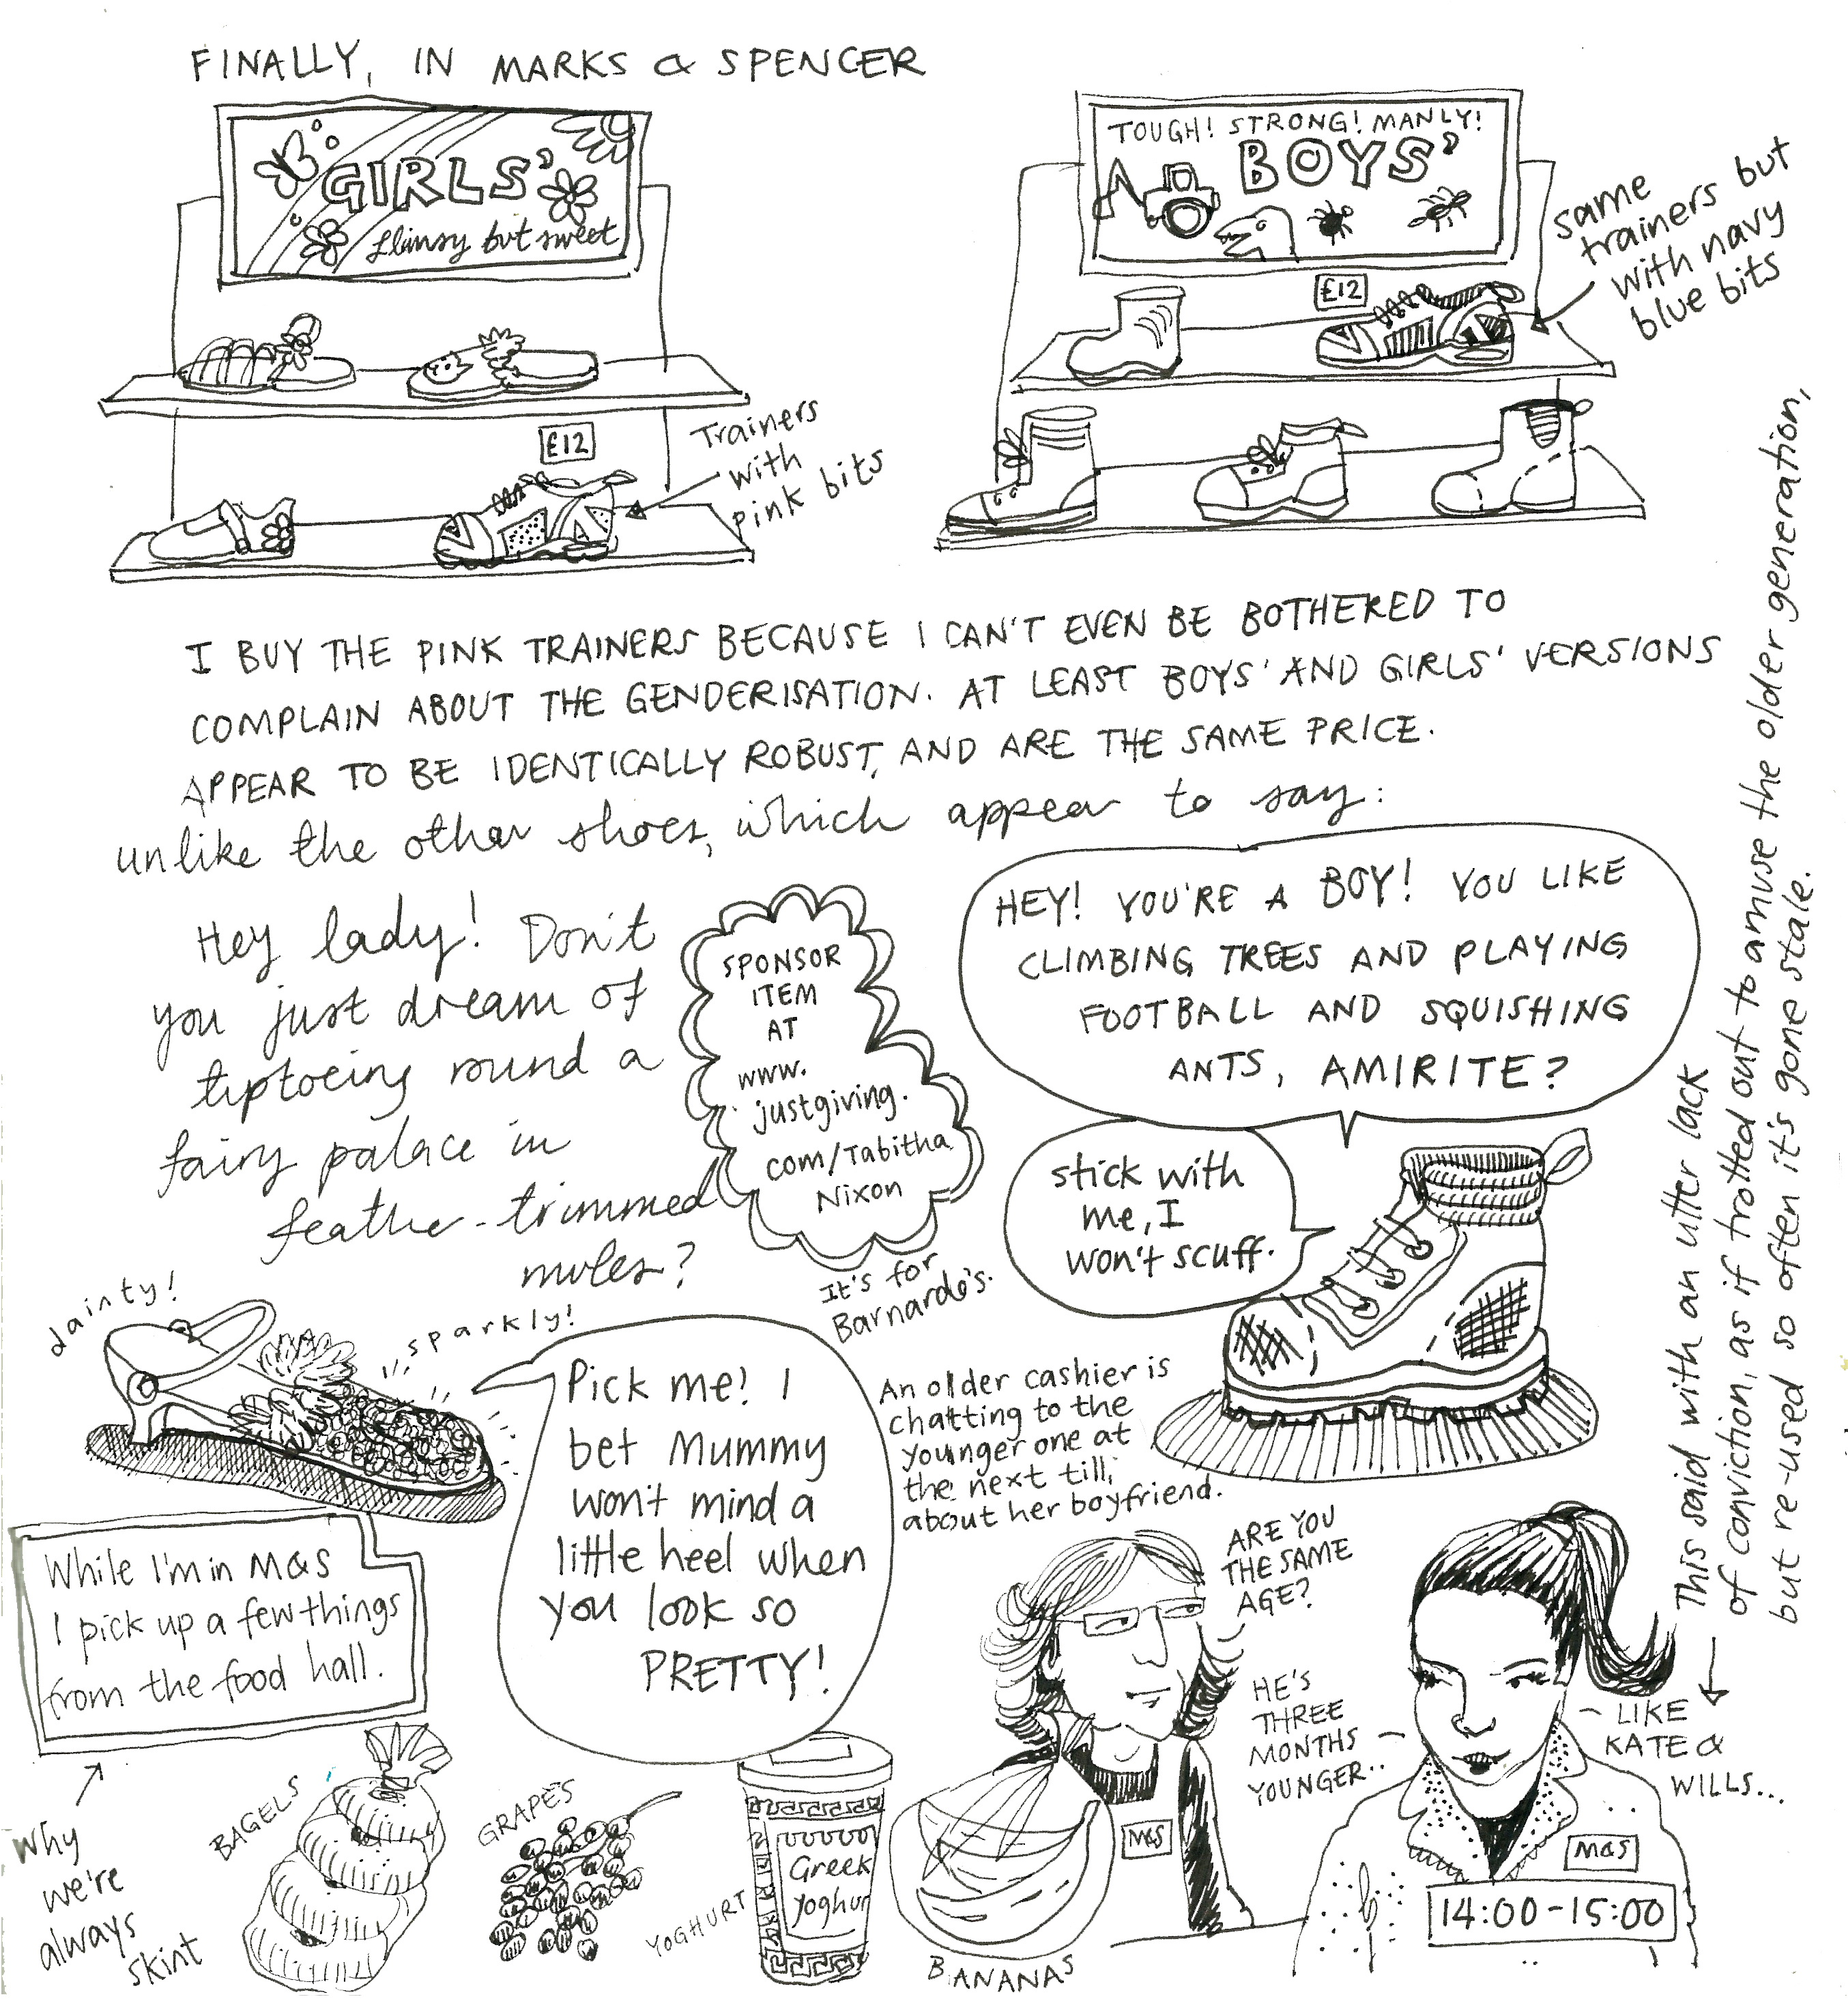 FINALLY, IN MARKS & SPENCER
GIRLS'
flimsy but sweet
TOUGH! STRONG! MANLY!
BOYS'
same
trainers but
with navy
blue bits
£12
£12
Trainers
with
pink bits
I BUY THE PINK TRAINERS BECAUSE I CAN'T EVEN BE BOTHERED TO
COMPLAIN ABOUT THE GENDERISATION. AT LEAST BOYS' AND GIRLS' VERSIONS
APPEAR TO BE IDENTICALLY ROBUST, AND ARE THE SAME PRICE.
unlike the other shoes, which appear to say:
Hey lady! Don't
you just dream of
tiptoeing round a
fairy palace in
feather-trimmed
mules?
SPONSOR
ITEM
AT
www.
justgiving.
com/Tabitha
Nixon
It's for
Barnardo's.
HEY! YOU'RE A BOY! YOU LIKE
CLIMBING TREES AND PLAYING
FOOTBALL AND SQUISHING
ANTS, AMIRITE?
stick with
me, I
won't scuff.
dainty!
sparkly!
Pick me! I
bet Mummy
won't mind a
little heel when
you look so
PRETTY!
An older cashier is
chatting to the
younger one at
the next till,
about her boyfriend.
ARE YOU
THE SAME
AGE?
HE'S
THREE
MONTHS
YOUNGER..
LIKE
KATE &
WILLS...
This said with an utter lack
of conviction, as if trotted out to amuse the older generation,
but re-used so often it's gone stale.
While I'm in M&S
I pick up a few things
from the food hall.
Why
we're
always
skint
BAGELS
GRAPES
YOGHURT
Greek
Yoghur
BANANAS
M&S
M&S
14:00-15:00